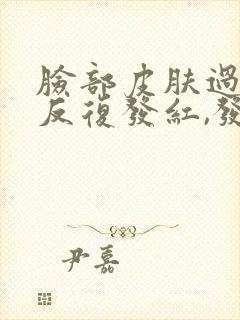 臉部皮肤過
反復發紅,發
尹嘉